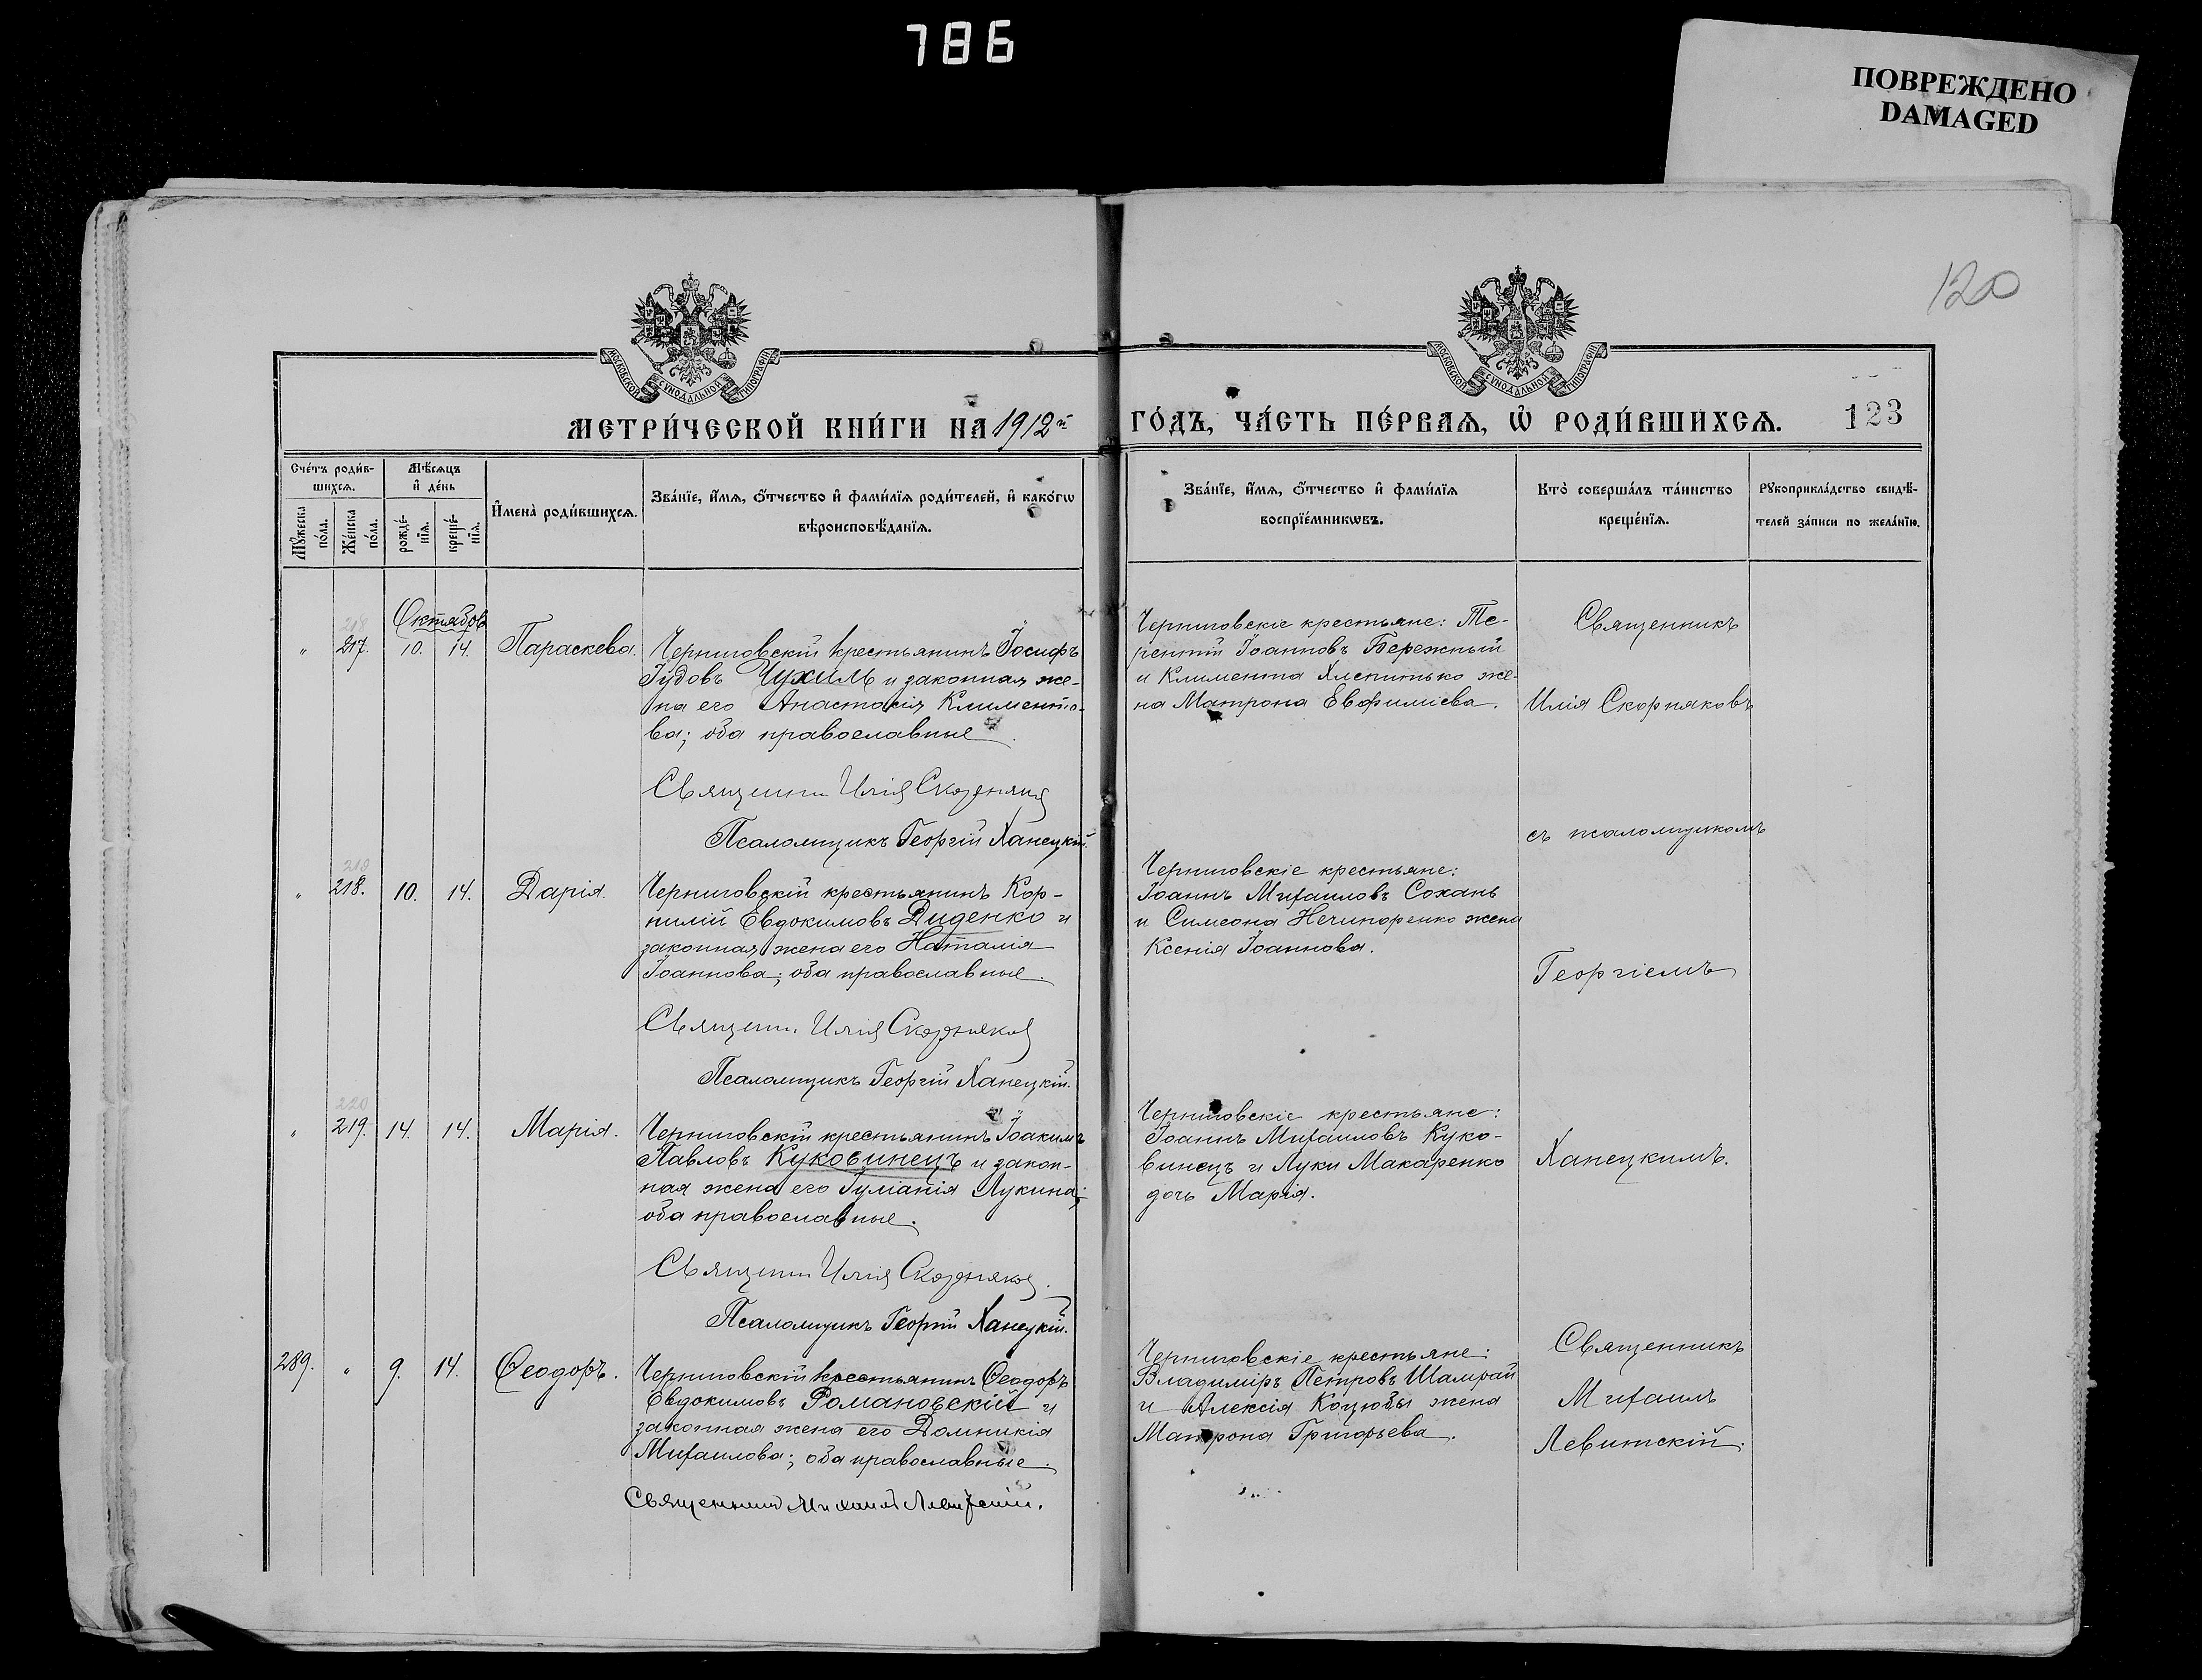 786
ПОВРЕЖДЕНО
DAMAGED
120
МОСКОВСКОЙ СѴНОДАЛЬНОЙ ТИПОГРАФІИ
МОСКОВСКОЙ СѴНОДАЛЬНОЙ ТИПОГРАФІИ
МЕТРИ́ЧЕСКОЙ КНИ́ГИ НА 1912й
ГО́ДЪ, ЧА́СТЬ ПЕ́РВАѦ, Ѡ҆ РОДИ́ВШИХСѦ.
123
Сче́тъ роди́в-
шихсѧ.
Мѣ́сѧцъ
и҆ де́нь
Мꙋ́жеска
по́ла.
Же́нска
по́ла.
рожде́-
нїѧ.
креще́-
нїѧ.
И҆мена̀ роди́вшихсѧ.
Зва́нїе, и҆́мѧ, ѻ҆́тчество и҆ фами́лїѧ роди́телей, и҆ како́гѡ
вѣроисповѣ́данїѧ.
Зва́нїе, и҆́мѧ, ѻ҆́тчество и҆ фами́лїѧ
воспрїе́мникѡвъ.
Кто̀ соверша́лъ та́инство
креще́нїѧ.
Рꙋкоприкла́дство свидѣ́-
телей за́писи по жела́нїю.
Октябрь
218
" 217. 10. 14. Параскева.
Черниговскій крестьянинъ Іосифъ
Іудовъ Чухиль и законная же-
на его Анастасія Климентo-
ва; оба православные.
Священн. Илія Скорняков
Псаломщикъ Георгій Ханецкій.
Черниговскіе крестьяне: Те-
рентій Іоанновъ Бережный
и Климента Хлепитько же-
на Матрона Евфиміева.
Священникъ
Илія Скорняковъ
съ псаломщикомъ
219
" 218. 10. 14. Дарія.
Черниговскій крестьянинъ Кор-
нилій Евдокимовъ Диденко и
законная жена его Наталія
Іоаннова; оба православные.
Священн. Илія Скорняков
Псаломщикъ Георгій Ханецкій.
Черниговскіе крестьяне:
Іоаннъ Михаиловъ Сохань
и Симеона Нечипоренко жена
Ксенія Іоаннова.
Георгіемъ
220
" 219. 14. 14. Марія.
Черниговскій крестьянинъ Іоакимъ
Павловъ Куковинецъ и закон-
ная жена его Гуліанія Лукина;
оба православные.
Священн Илія Скорняков.
Псаломщикъ Георгій Ханецкій.
Черниговскіе крестьяне:
Іоаннъ Михаиловъ Куко-
винецъ и Луки Макаренко
дочь Марія.
Ханецкимъ.
289. " 9. 14. Ѳеодоръ.
Черниговскій крестьянинъ Ѳеодоръ
Евдокимовъ Романовскій и
законная жена его Домникія
Михаилова; оба православные.
Священник Михаил Левитскій.
Черниговскіе крестьяне:
Владиміръ Петровъ Шамрай
и Алексія Коцюбы жена
Матрона Григорьева.
Священникъ
Михаилъ
Левитскій.